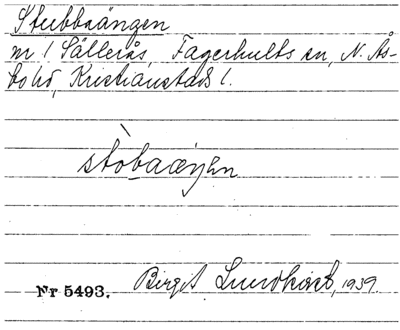 Stubbaängen
nr 1 Sällerås, Fagerhults sn, N. Ås-
bo hd, Kristianstads l.
stòbaæŋen
Nr 5493. Birgit Lundkvist, 1939.